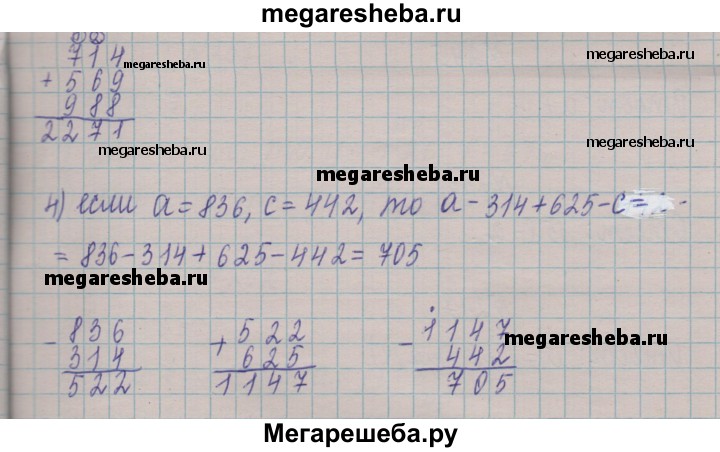 megaresheba.ru
714
megaresheba.ru
+ 569
988
2271
megaresheba.ru
megaresheba.ru
megaresheba.ru
4) если a = 836, c = 442, то a - 314 + 625 - c =
= 836 - 314 + 625 - 442 = 705
megaresheba.ru
- 836
314
522
+ 522
625
1147
- 1147
442
705
megaresheba.ru
Мегарешеба.ру